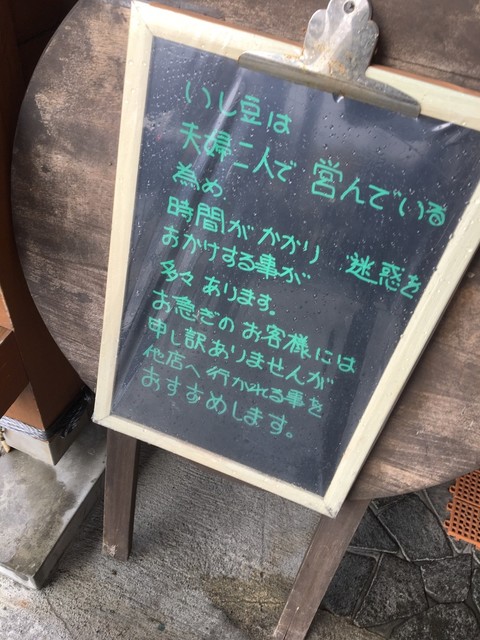 いし豆は
夫婦二人で 営んでいる
為め
時間が かかり 迷惑を
おかけする事が
多々 あります。
お急ぎの お客様には
申し訳ありませんが
他店へ 行かれる事を
おすすめします。